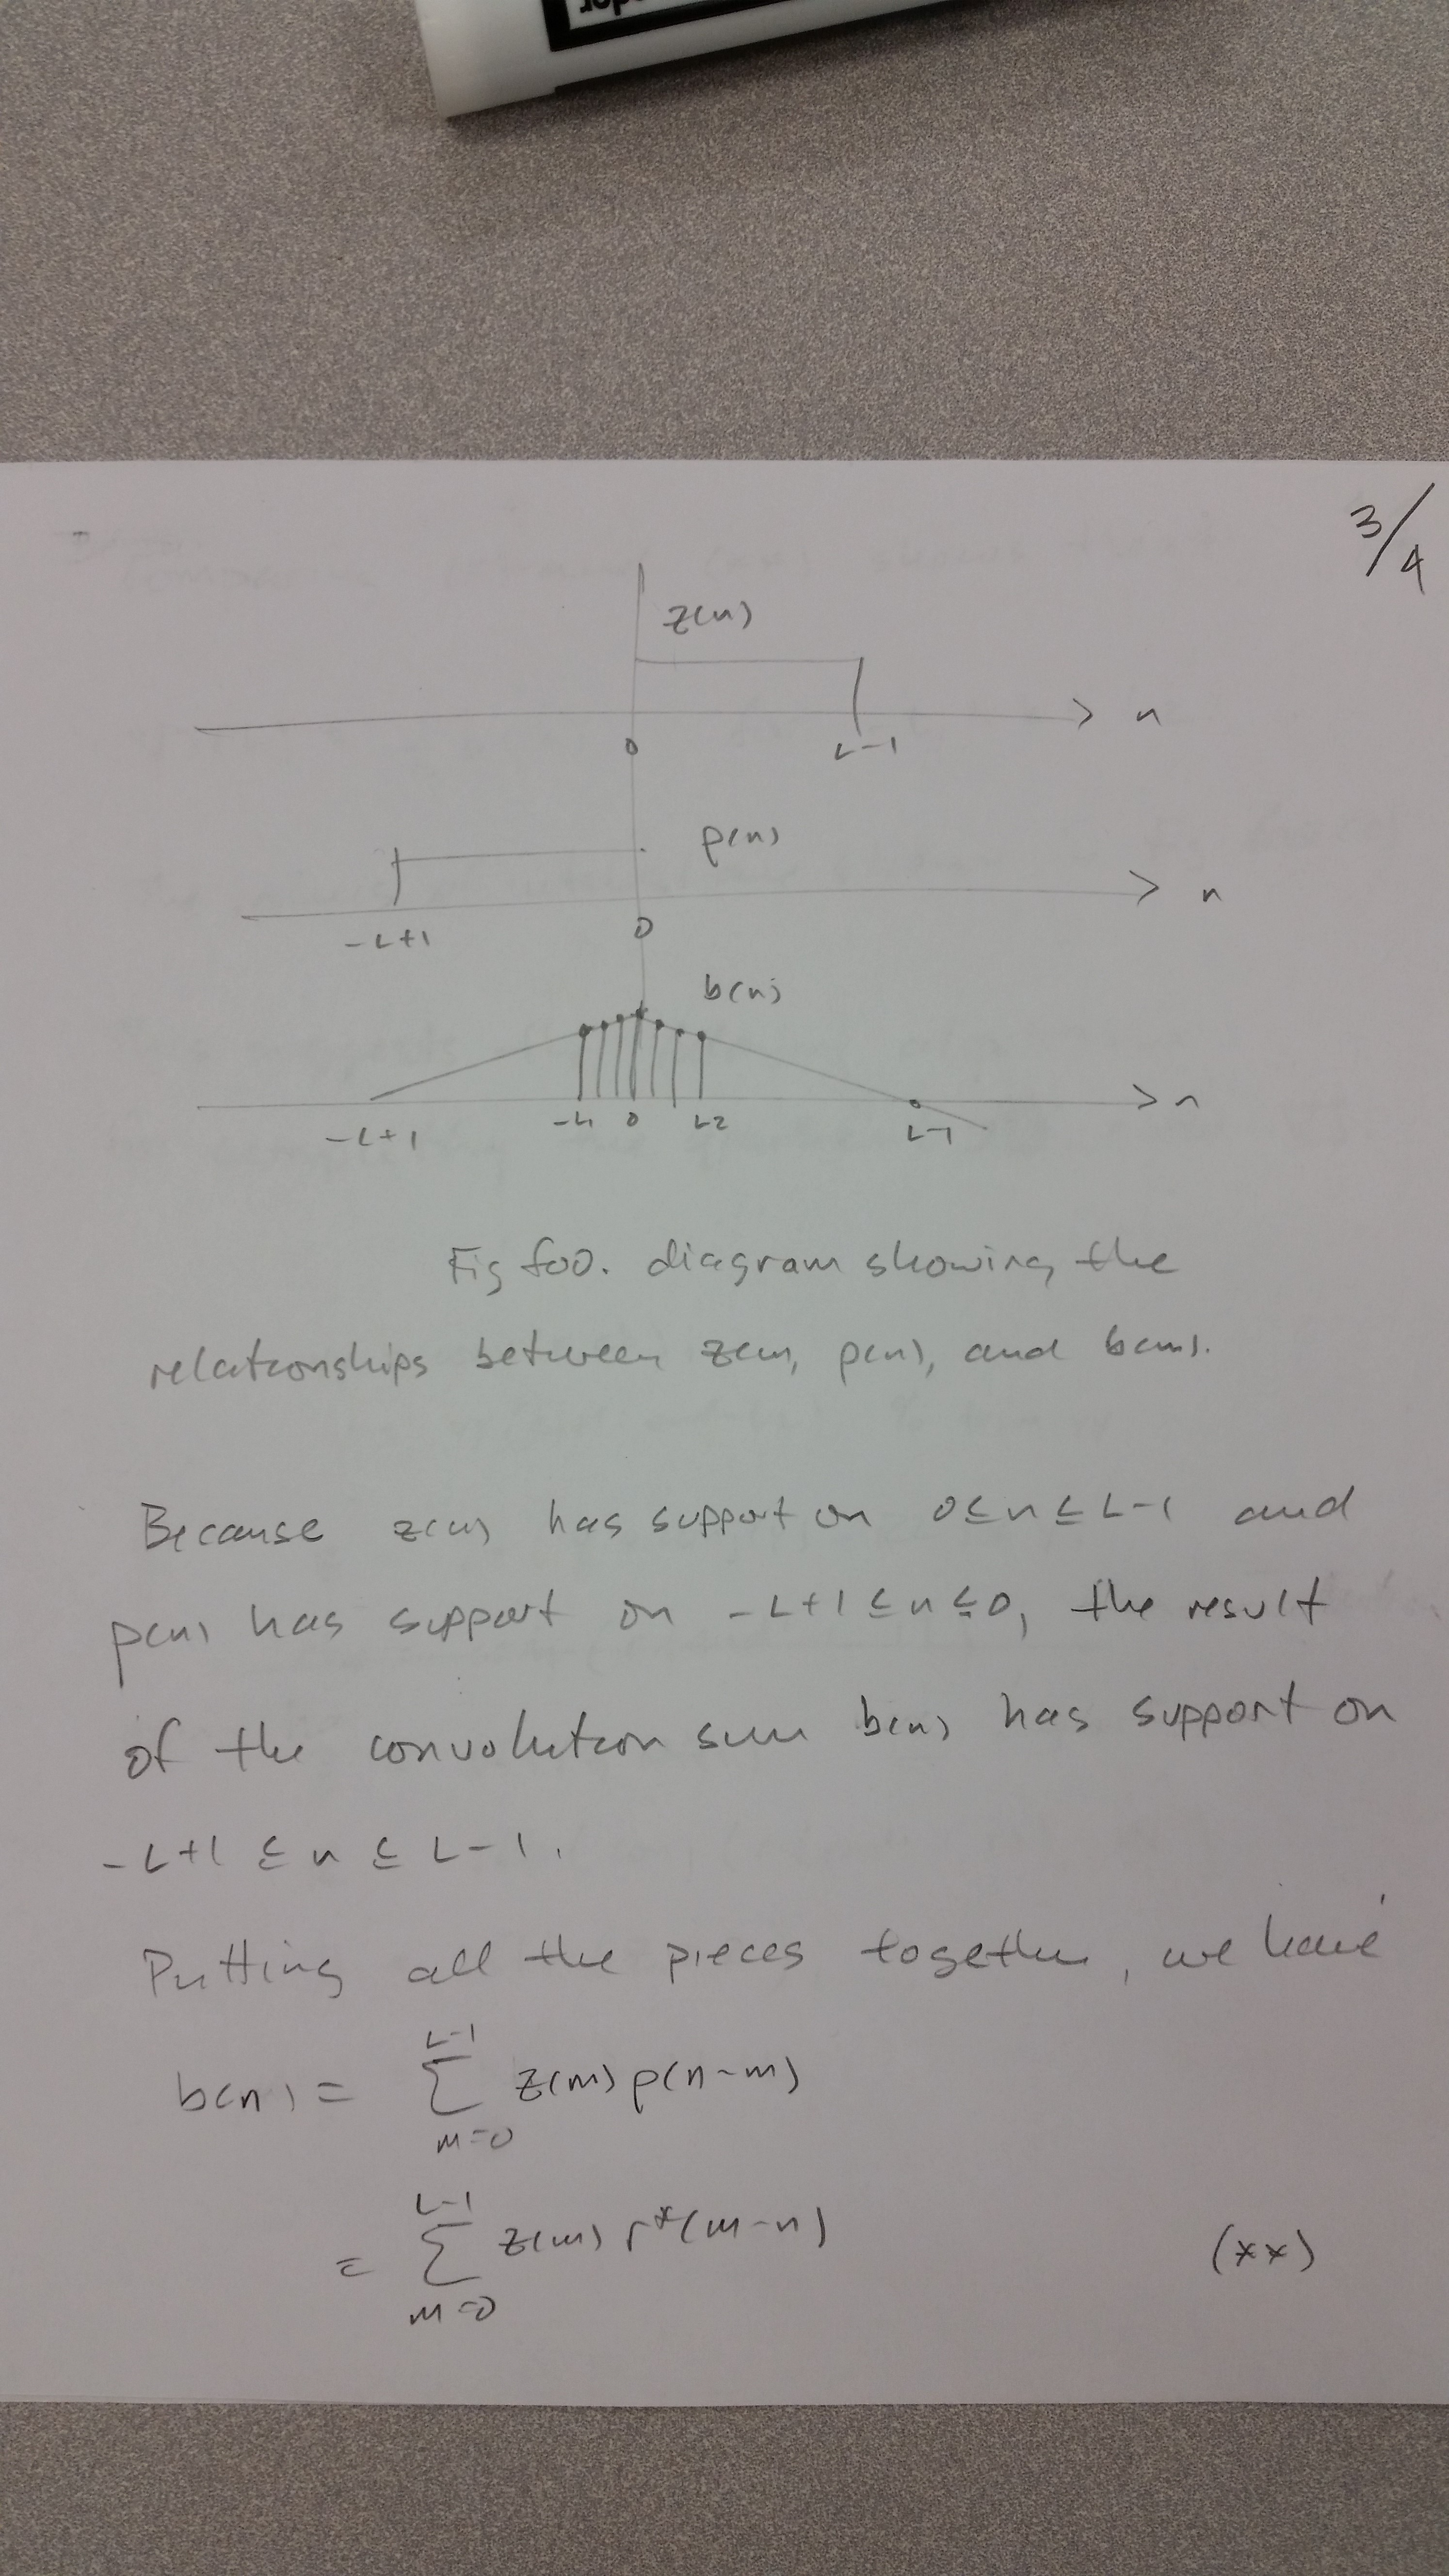 3/4
z(n)
n
0
L-1
p(n)
n
-L+1
0
b(n)
n
-L+1
-L1
0
L2
L-1
Fig foo. diagram showing the
relationships between z(n), p(n), and b(n).
Because z(n) has support on 0≤n≤L-1 and
p(n) has support on -L+1≤n≤0, the result
of the convolution sum b(n) has support on
-L+1 ≤ n ≤ L-1.
Putting all the pieces together, we have
L-1
b(n) = Σ z(m) p(n-m)
m=0
L-1
= Σ z(m) r*(m-n) (**)
m=0